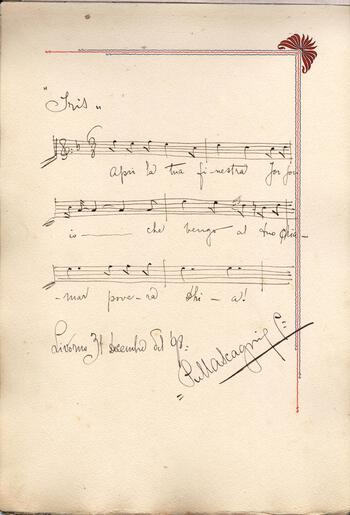 " Iris "
Apri la tua fi-nestra Jor Jor
io — che vengo al tuo chia-
-mar pove-ra Dhi-a!
Livorno 31 decembre del '98:
PMascagni